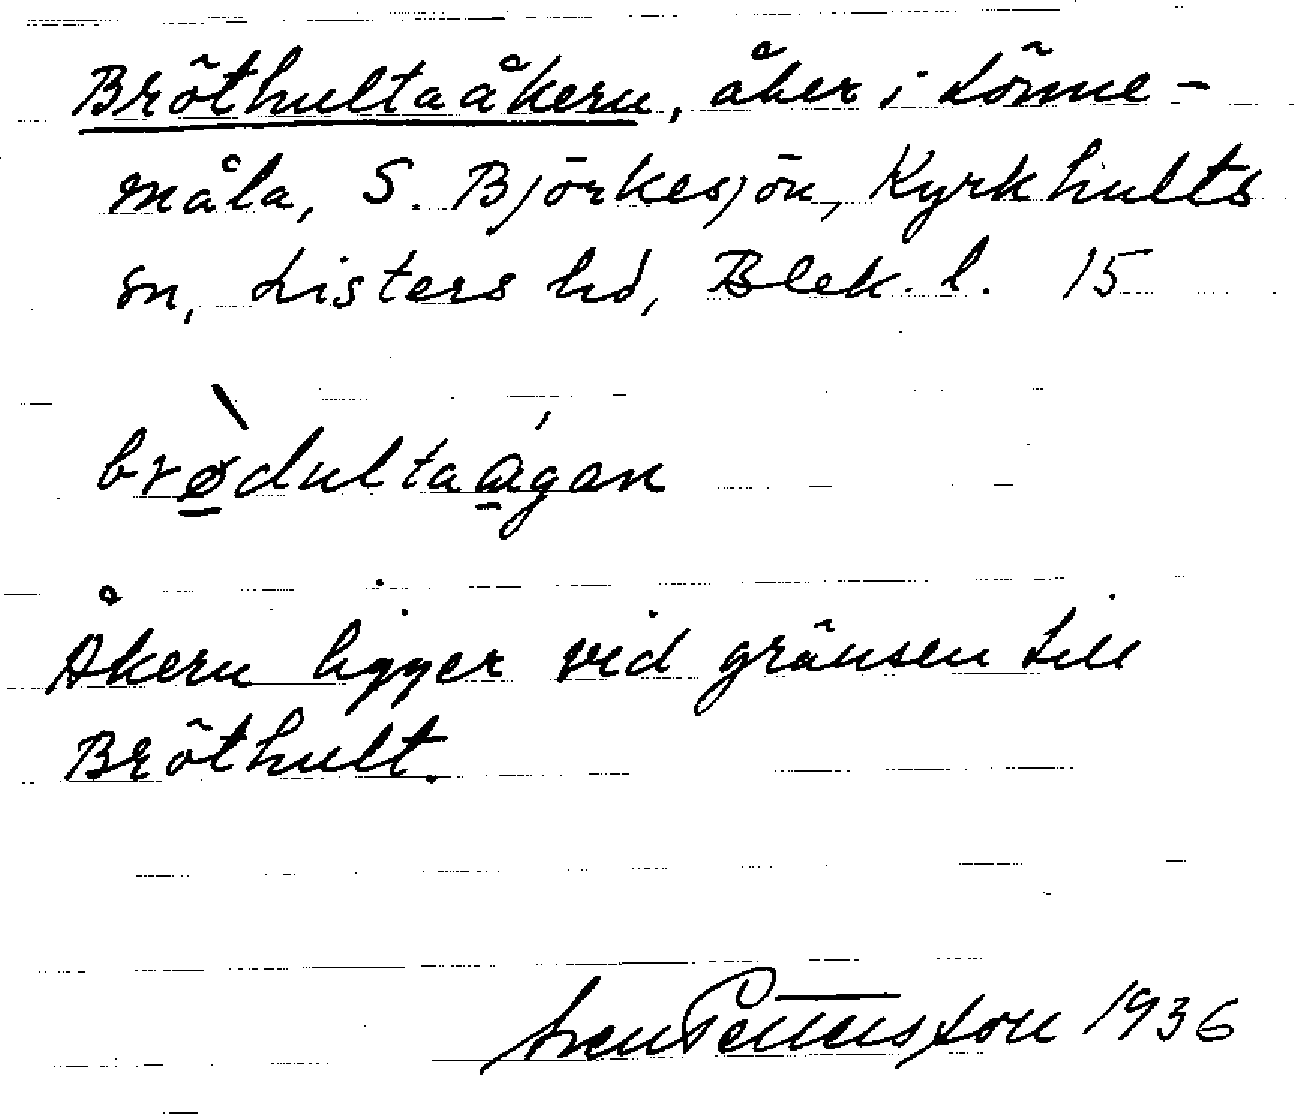 Bröthultaåkern, åker i Lönne-
måla, S. Björkesjön, Kyrkhults
sn, Listers hd, Blek. l. 15
brø̱̀dultaá̱gan
Åkern ligger vid gränsen till
Bröthult.
Sven Pettersson 1936